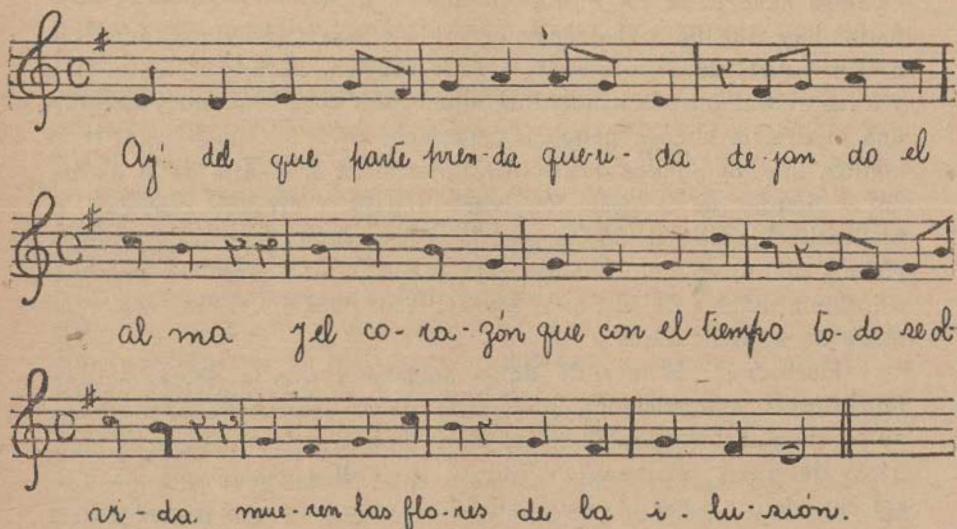 Ay' del que parte pren-da que-ri-da de-jan do el
al ma y el co-ra-zón que con el tiempo to-do se ol-
vi-da. mue-ren las flo-res de la i-lu-sión.